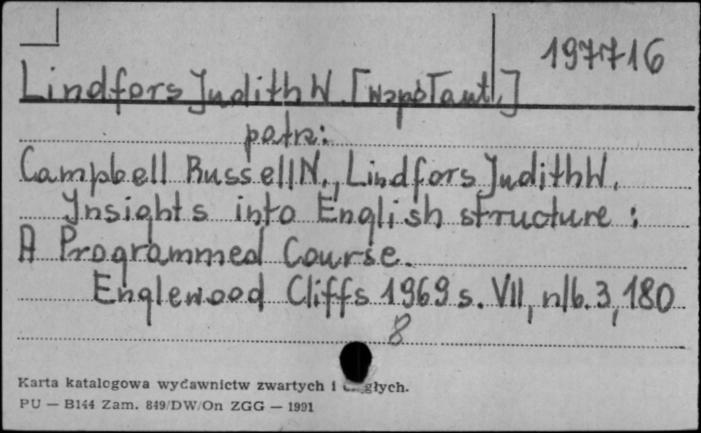 197716
Lindfors Judith W. [współaut.]
patrz:
Campbell Russell N., Lindfors Judith W.
Insights into English structure :
A Programmed Course.
Englewood Cliffs 1969 s. VII, nlb. 3, 180
8
Karta katalogowa wydawnictw zwartych i
PU — B144 Zam. 849/DW/On ZGG — 1991